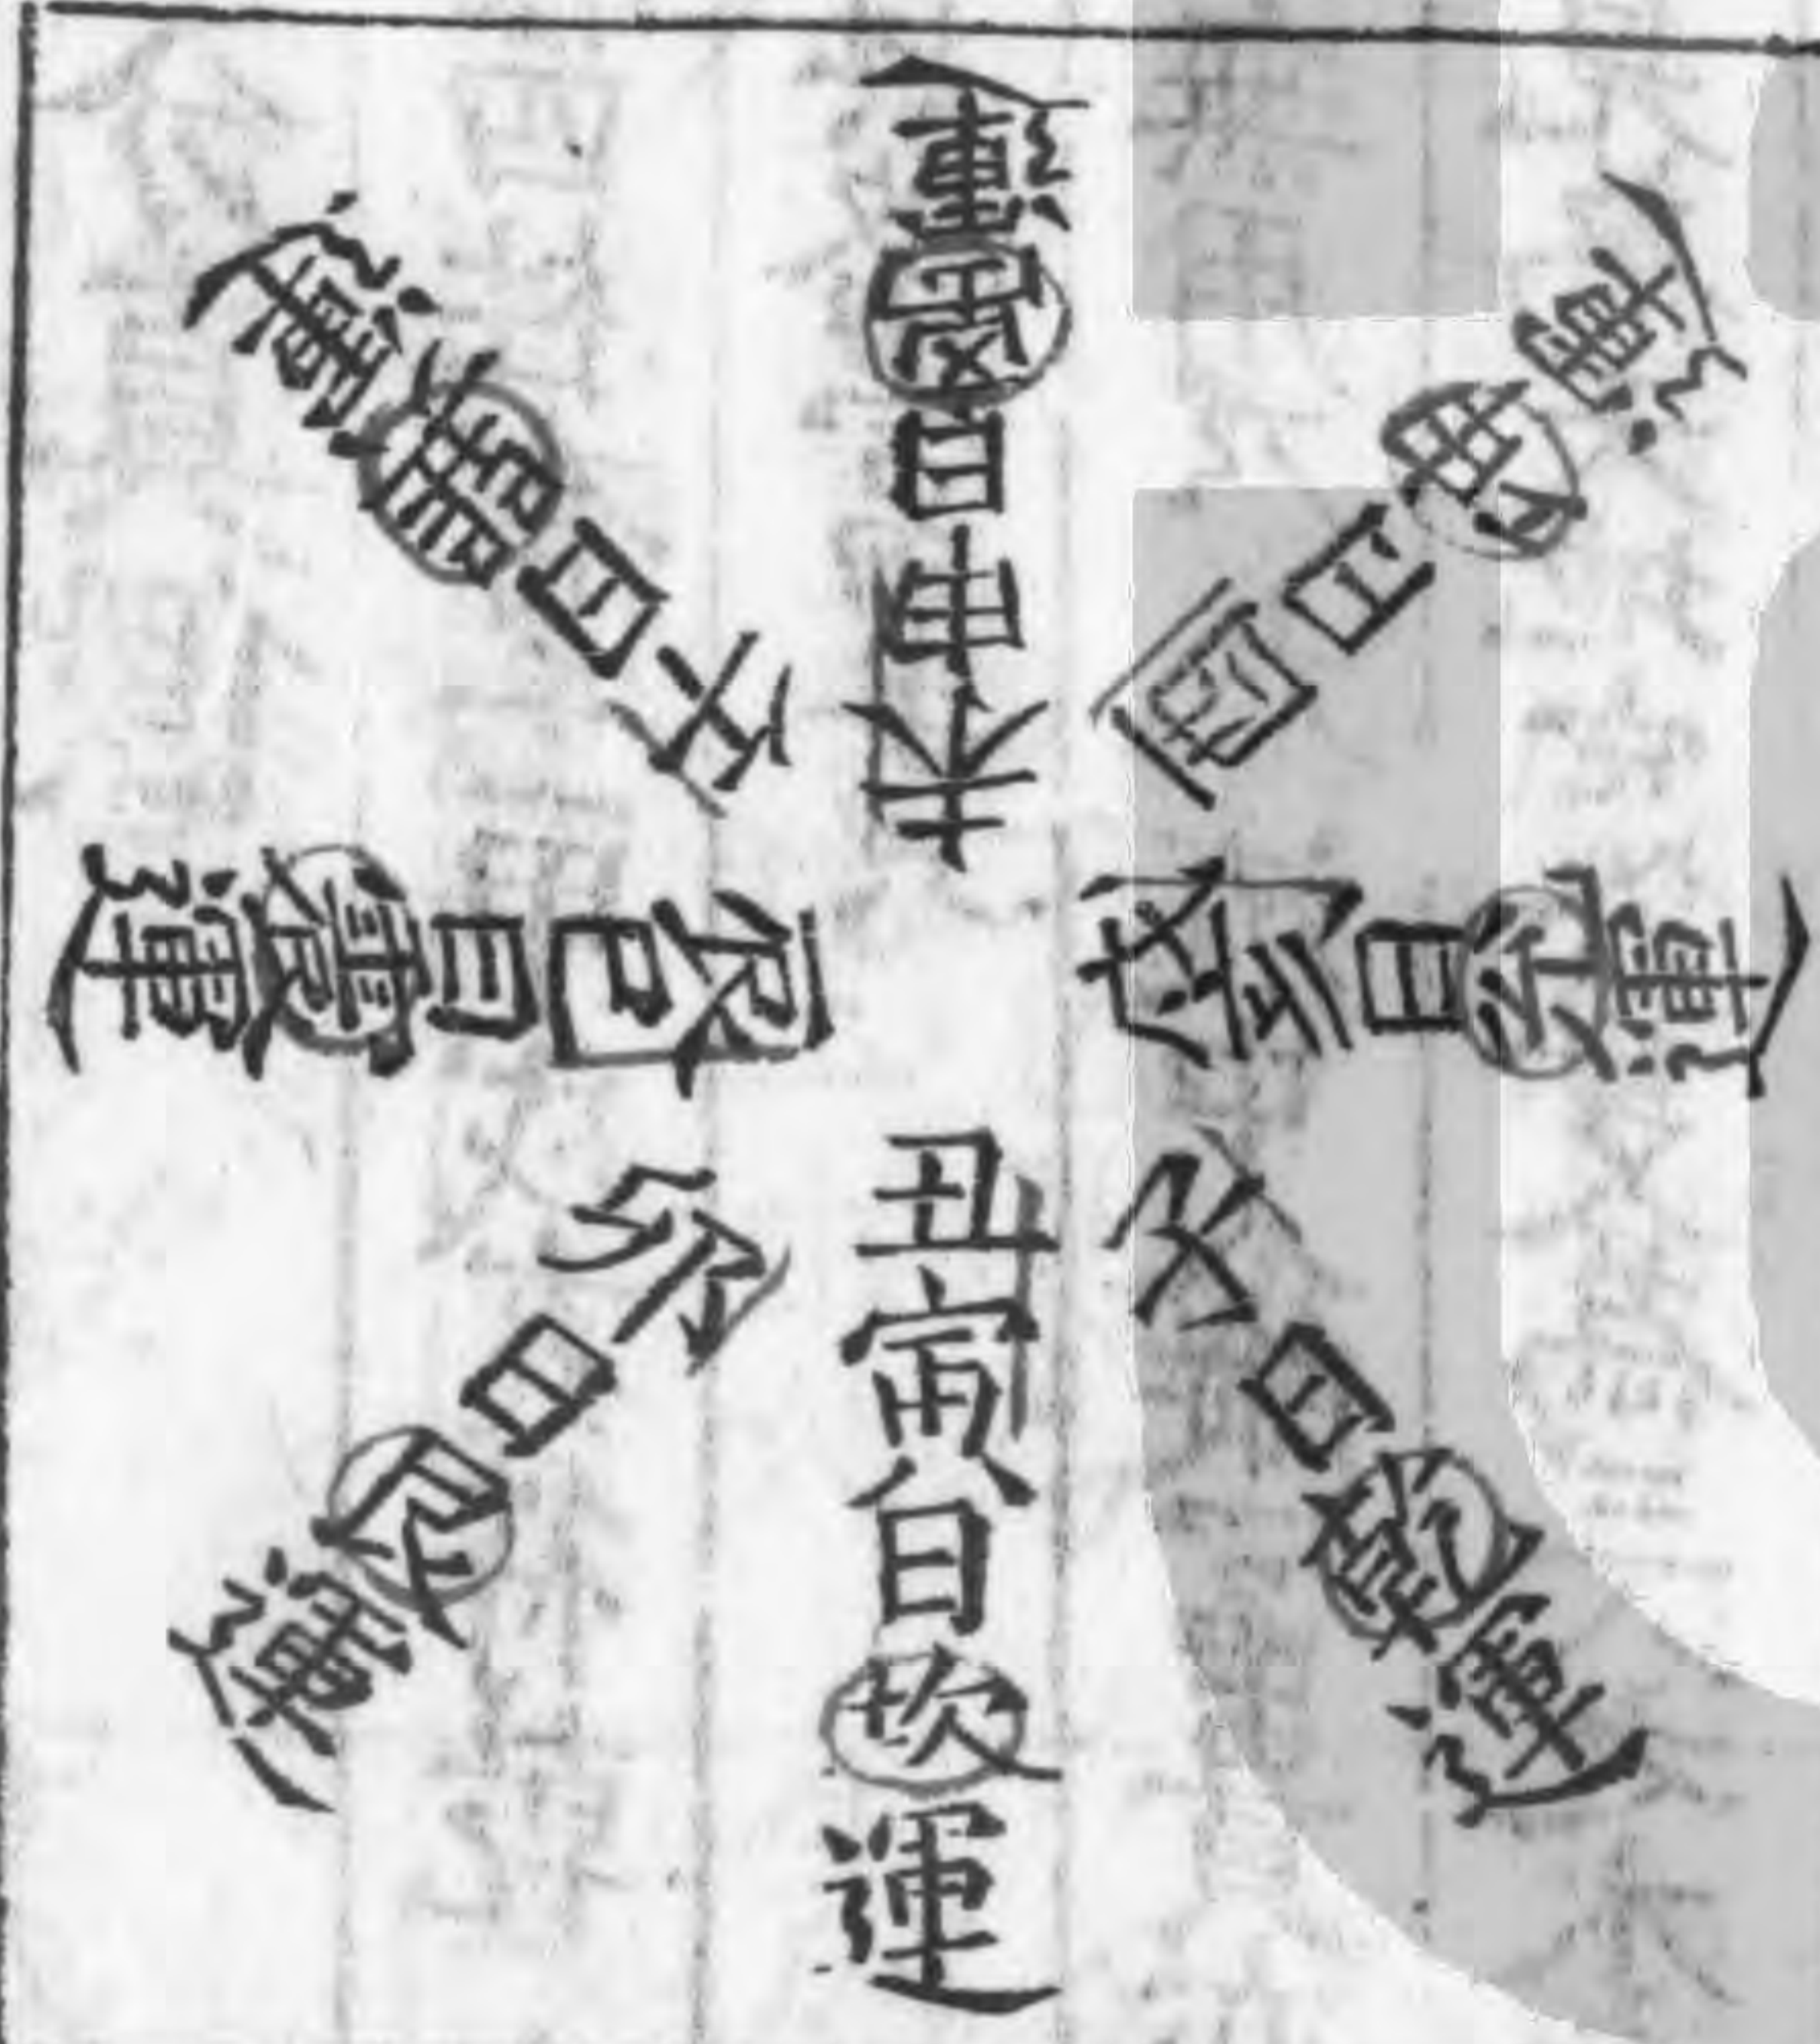 丑寅日坎運
夘日艮運
辰巳日震運
午日巽運
未申日离運
酉日坤運
戌亥日兊運
子日乾運